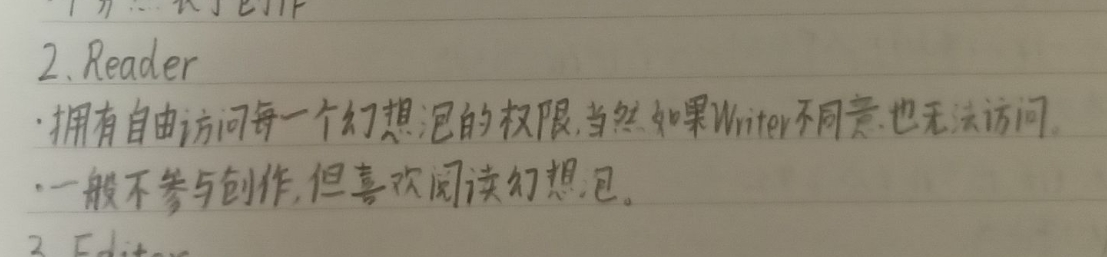 2、Reader
·拥有自由访问每一个幻想泡的权限,当然如果Writer不同意,也无法访问。
·一般不参与创作,但喜欢阅读幻想泡。
3、Editor